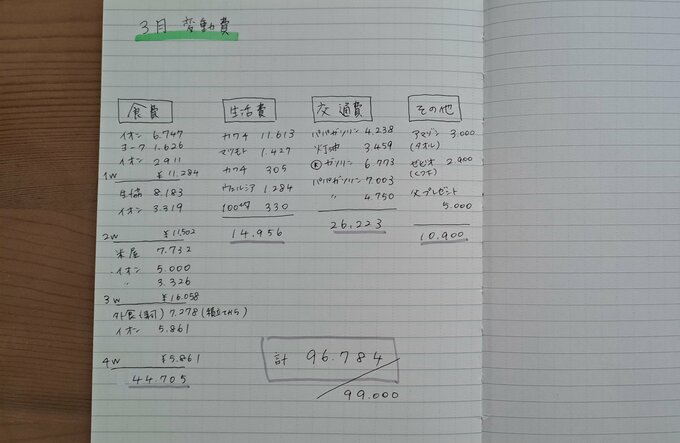 3月 変動費
食費
イオン 6.747
ヨーク 1.626
イオン 2911
1w ¥11.284
生協 8.183
イオン 3.319
2w ¥11,502
米屋 7.732
イオン 5.000
〃 3.326
3w ¥16.058
外食(寿司) 7.278(積立てから)
イオン 5.861
4w ¥5.861
44.705
生活費
カワチ 11.613
マツモト 1.427
カワチ 305
ウェルシア 1284
100均 330
14.956
交通費
パパガソリン 4.238
灯油 3.459
ガソリン 6.773
パパガソリン 7.003
〃 4.750
26.223
その他
アマゾン 3,000
(タオル)
ゼビオ 2900
父プレゼント
5.000
10,900
計 96.784
99.000